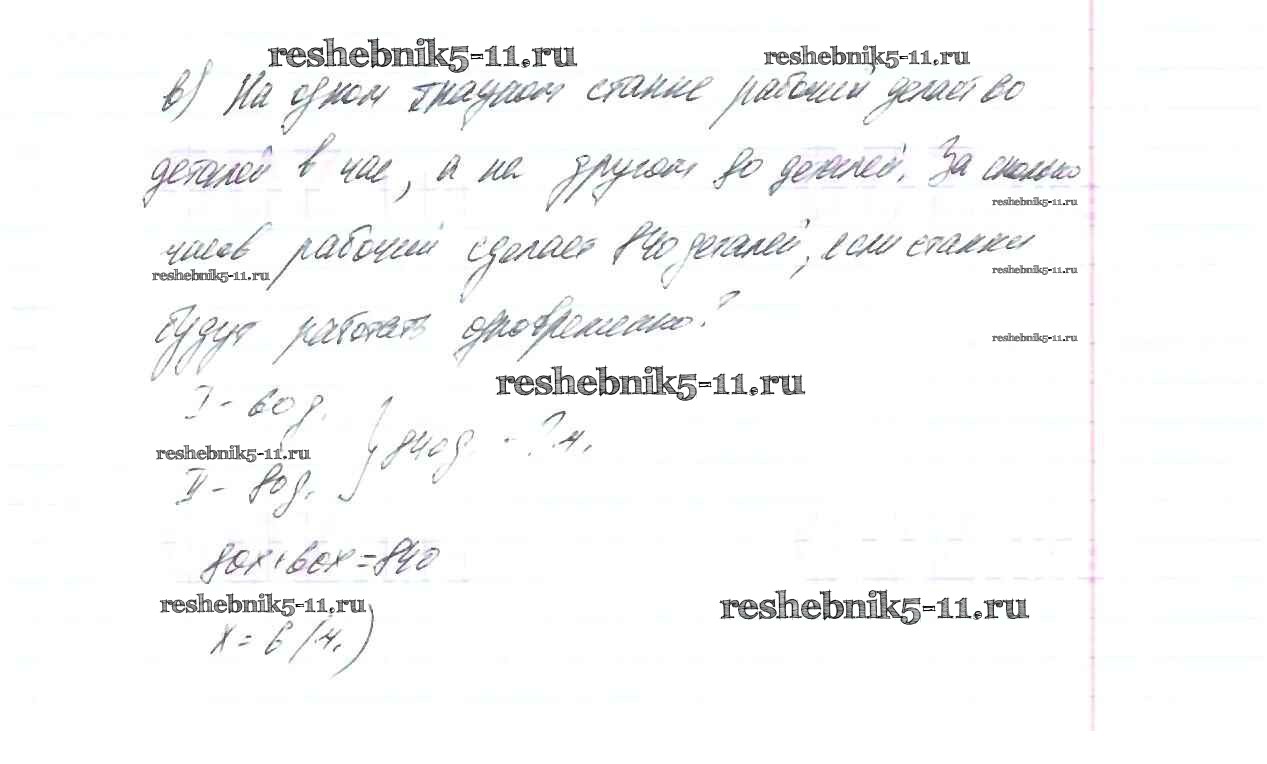 reshebnik5-11.ru reshebnik5-11.ru
в) На одном станке рабочий делает 60
деталей в час, а на другом 80 деталей. За сколько
reshebnik5-11.ru
часов рабочий сделает 840 деталей, если станки
reshebnik5-11.ru reshebnik5-11.ru
будут работать одновременно?
reshebnik5-11.ru
reshebnik5-11.ru
I - 60 д.
840д. - ? ч.
reshebnik5-11.ru
II - 80 д.
80x+60x=840
reshebnik5-11.ru reshebnik5-11.ru
x = 6 (ч.)